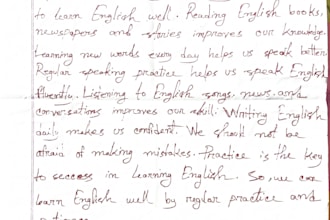 to learn English well. Reading English books,
newspapers and stories improves our knowledge.
Learning new words every day helps us speak better.
Regular speaking practice helps us speak English
fluently. Listening to English songs, news, and
conversations improves our skill. Writing English
daily makes us confident. We should not be
afraid of making mistakes. Practice is the key
to success in learning English. So, we can
learn English well by regular practice and